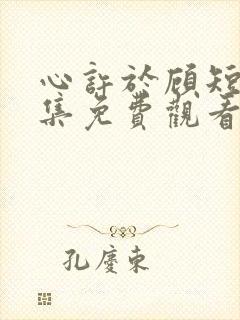 心許於顧短
集免費觀看
孔慶東